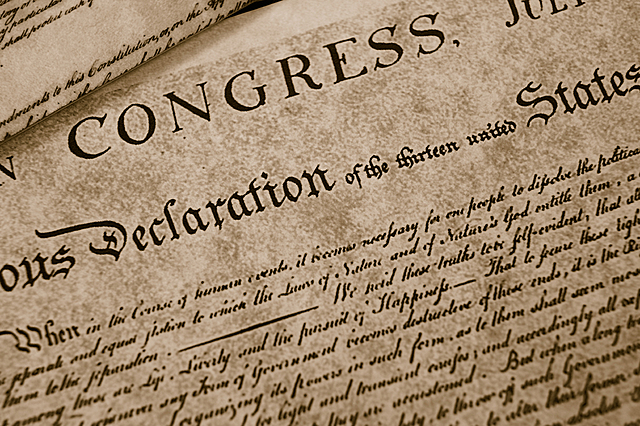 this Constitution, or, on the
N CONGRESS, JULY
ous Declaration of the thirteen united States
When in the Course of human events, it becomes necessary for one people to dissolve the political
separate and equal station to which the Laws of Nature and of Nature's God entitle them, a
them to the separation. We hold these truths to be self-evident, that all
among these are Life, Liberty and the pursuit of Happiness.— That to secure these righ
whenever any Form of Government becomes destructive of these ends, it is the Ri
organizing its powers in such form, as to them shall seem mos
for light and transient causes; and accordingly all
they are accustomed. But when a long
duty, to throw off such Government